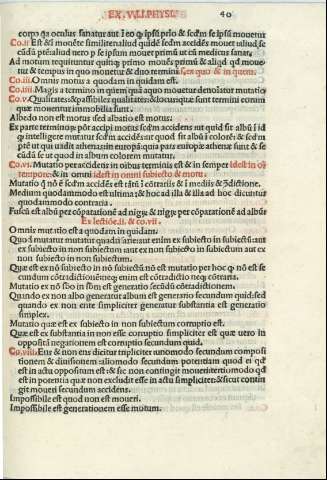 EX .V.LI.PHYSI.
40
corpꝰ qa oculus sanatur aut ĩ eo ꝙ ipsũ prĩo & scd̃m se ipsũ mouetur
Co.ii Est &ĩ mouẽte similiter aliud quidẽ scd̃m accidẽs mouet aliud se
cũdũ ptẽ aliud uero p se ipsum mouet primũ ut eũ medicus sanat.
Ad motum requiruntur quinqꝫ primo mouẽs primũ & aliqd qđ moue
tur & tempus in quo mouetur & duo termini .s. ex quo & in quem.
Co.iii. Omnis motus a quodam in quodam est.
Co.iiii. Magis a termino in quem quã a quo mouetur denoĩatur mutatio
Co.v. Qualitates & passibiles qualitates & locus quæ sunt termini eorum
quæ mouentur immobilia sunt.
Albedo non est motus sed albatio est motus.
Ex parte terminoꝝ põt accipi motus scd̃m accidẽs ut quid fit albũ ĩ id
qđ intelligetur mutatur scd̃m accidẽs aut quod fit albũ ĩ colorẽ & scd̃m
ptẽ ut qui uadit athenas in europã quia pars europæ athenæ sunt & se
cũdũ se ut quod in album colorem mutatur.
Co.vi. Mutatio per accidens in oĩbus terminis est & in semper idest in oĩ
tempore: & in omni idest in omni subiecto & motu.
Mutatio qđ nõ ẽ scd̃m accidẽs est tãtũ ĩ cõtrariis & ĩ mediis & ɔ̃dictiõe.
Medium quodammodo est ultima: & hoc ad illa & illa ad hoc dicuntur
quodammodo contraria.
Fusca est alba per cõparationẽ ad nigrã & nigra per cõparationẽ ad albã
Ex lectiõe .ii. & co.vii.
Omnis mutatio est a quodam in quidam.
Quod mutatur mutatur quadrifariæ aut enim ex subiecto in subiectũ: aut
ex subiecto in non subiectum aut ex non subiecto in subiectum aut ex
non subiecto in non subiectum.
Quæ est ex nõ subiecto in nõ subiectũ nõ est mutatio per hoc qꝫ nõ est se
cundum cõtradictionẽ: neqꝫ enim est cõtradictio neqꝫ cõtraria.
Mutatio ex nõ sb̃o in sb̃m est generatio secũdũ cõtradictionem.
Quando ex non albo generatur album est generatio secundum quid sed
quando ex non ente simpliciter generatur substantia est generatio
simplex.
Mutatio quæ est ex subiecto in non subiectum corruptio est.
Quæ est ex substantia in non esse corruptio simpliciter est quæ uero in
oppositã negationem est corruptio secundum quid.
Co.viii. Ens & non ens dicitur tripliciter uno modo secundum composi
tionem & diuisionem alio modo secundum potentiam quod ei qđ
est in actu oppositum est: & sic non contingit moueri tertio modo qđ
est in potentia quæ non excludit esse in actu simpliciter & sic contin
git moueri secundum accidens.
Impossibile est quod non est moueri.
Impossibile est generationem esse motum.